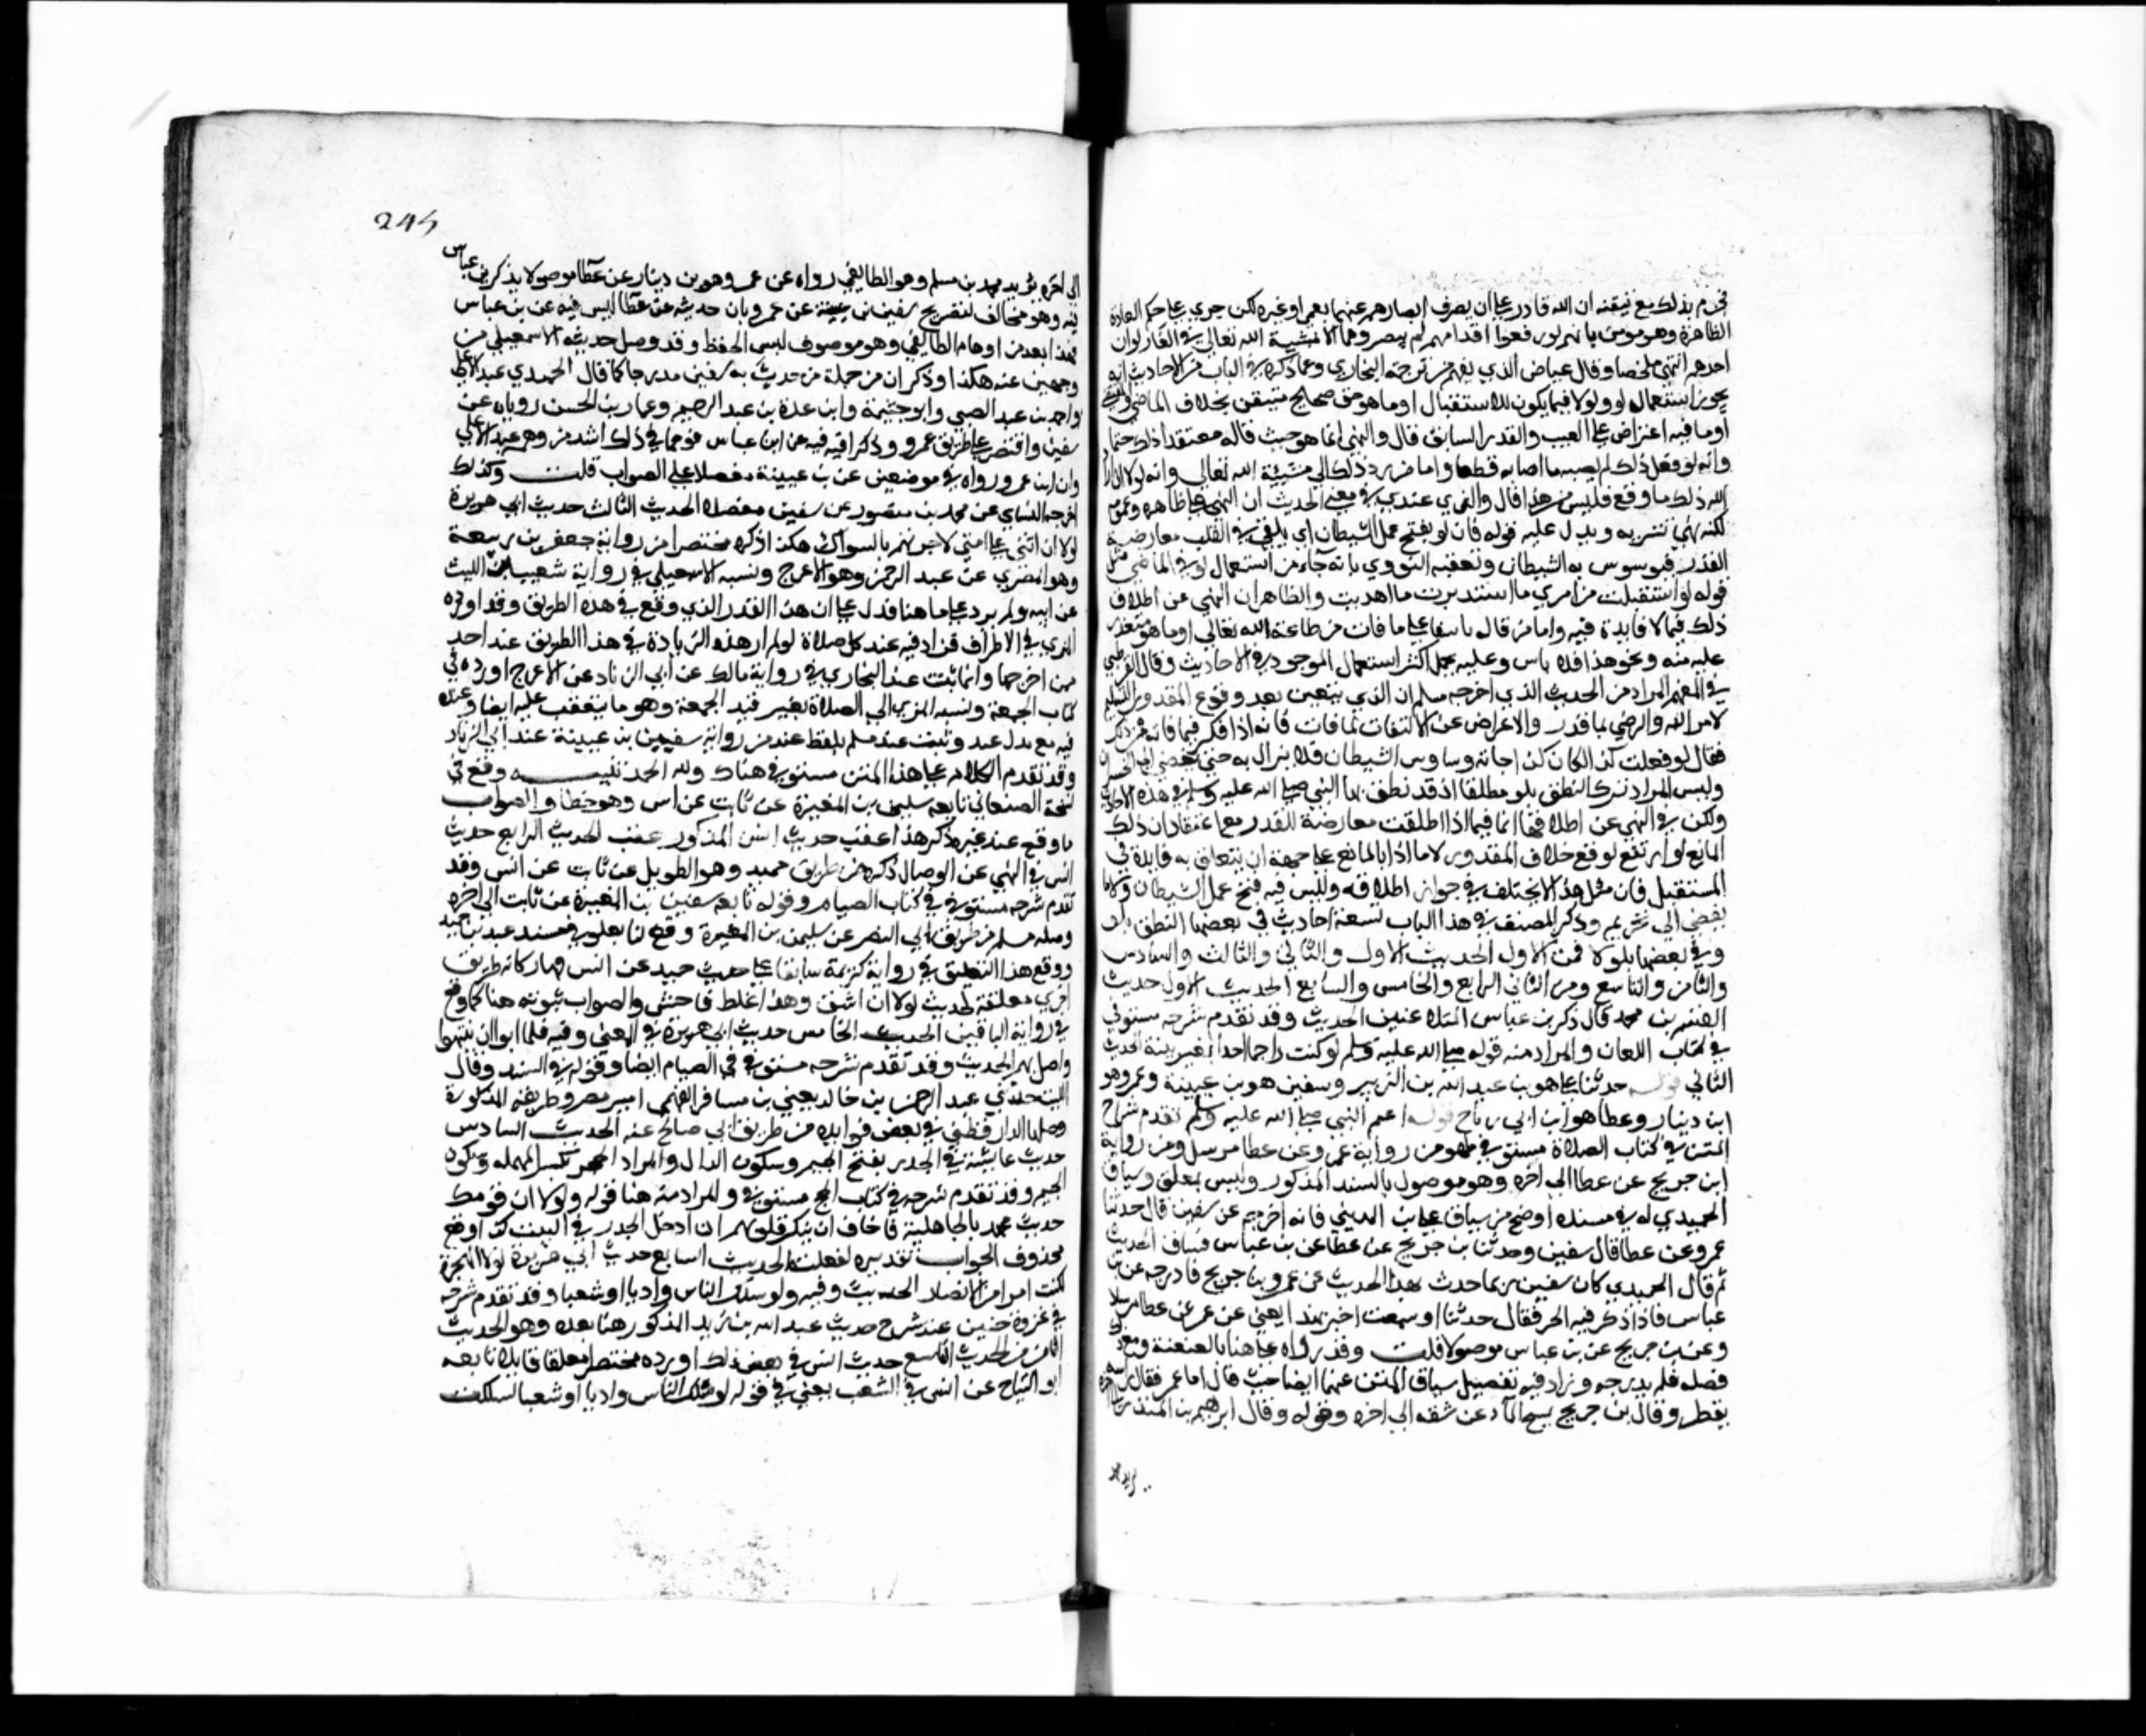 فجزم بذلك مع تيقنه ان الله قادر على ان يصرف ابصارهم عنهما بعمى او غيره لكن جرى على حكم العادة
الظاهرة وهو موقن بانهم لو رفعوا اقدامهم لم يبصروهما الا بمشية الله تعالى في الغار لو ان
احدهم انتهى ملخصا وقال عياض الذي يفهم من ترجمة البخاري ومما ذكره في الباب من الاحاديث انه
يجوز استعمال لو ولولا فيما يكون للاستقبال او ما هو حق صحيح متيقن بخلاف الماضي
او ما فيه اعتراض على الغيب والقدر السابق قال والنهي انما هو حيث قاله معتقدا ذلك حتما
وانه لو فعل ذلك لم يصبه ما اصابه قطعا واما من رد ذلك الى مشيئة الله تعالى وانه لولا ان
الله ذلك ما وقع فليس من هذا قال والذي عندي في معنى الحديث ان النهي على ظاهره وعمومه
لكنه نهي تنزيه ويدل عليه قوله فان لو يفتح عمل الشيطان اي يلقي في القلب معارضة
القدر فيوسوس به الشيطان وتعقبه النووي بانه جاء من استعمال لو في الماضي مثل
قوله لو استقبلت من امري ما استدبرت ما اهديت والظاهر ان النهي عن اطلاق
ذلك فيما لا فايدة فيه واما من قاله تاسفا على ما فات من طاعة الله تعالى او ما هو متعذر
عليه منه ونحو هذا فلا باس وعليه يحمل اكثر استعمال الموجود في الاحاديث وقال القرطبي
في المفهم المراد من الحديث الذي اخرجه مسلم ان الذي يتعين بعد وقوع المقدور التسليم
لامر الله والرضى بما قدر والاعراض عن الالتفات لما فات فانه اذا فكر فيما فاته من ذلك
فقال لو فعلت كذا لكان كذا جاءته وساوس الشيطان فلا يزال به حتى يفضي الى الخسران
وليس المراد ترك النطق بلو مطلقا اذ قد نطق بها النبي صلى الله عليه وسلم في هذه الاحاديث
ولكن في النهي عن اطلاقها انما فيما اذا اطلقت معارضة للقدر مع اعتقاد ان ذلك
المانع لو ارتفع لوقع خلاف المقدور لا ما اذا بالمانع على جهة ان يتعلق به فايدة في
المستقبل فان مثل هذا لا يختلف في جواز اطلاقه وليس فيه فتح عمل الشيطان ولا ما
يفضي الى تحريم وذكر المصنف في هذا الباب تسعة احاديث في بعضها النطق بلو
وفي بعضها بلولا فمن الاول الحديث الاول والثاني والثالث والسادس
والثامن والتاسع ومن الثاني الرابع والخامس والسابع الحديث الاول حديث
القسم بن محمد قال ذكر بن عباس المتلاعنين الحديث وقد تقدم شرحه مستوفى
في كتاب اللعان والمراد منه قوله صلى الله عليه وسلم لو كنت راجما احدا بغير بينة الحديث
الثاني قوله حدثنا علي هو بن عبد الله بن الزبير وسفين هو بن عيينة وعمرو هو
ابن دينار وعطا هو ابن ابي رباح قوله اعتم النبي صلى الله عليه وسلم تقدم شرح
المتن في كتاب الصلاة مستوفى وهو من رواية عمرو عن عطا مرسل ومن رواية
ابن جريج عن عطا الى اخره وهو موصول بالسند المذكور وليس بمعلق وسياق
الحميدي له في مسنده اوضح من سياق علي بن المديني فانه اخرجه عن سفين قال حدثنا
عمرو عن عطا قال سفين وحدثنا بن جريج عن عطا عن بن عباس فساق الحديث
ثم قال الحميدي كان سفين ربما حدث بهذا الحديث عن عمرو وبن جريج فادرجه عن بن
عباس فاذا ذكر فيه الخبر فقال حدثنا او سمعت اخبر بهذا يعني عن عمرو عن عطا مرسلا
وعن بن جريج عن بن عباس موصولا قلت وقد رواه علي هنا بالعنعنة ومع ذلك
فصله فلم يدرجه وزاد فيه تفصيل سياق المتن عنهما ايضا حيث قال اما عمرو فقال راسه
يقطر وقال بن جريج يمسح الماء عن شقه الى اخره وقوله وقال ابرهيم بن المنذر
245
الى اخره يريد محمد بن مسلم وهو الطايفي رواه عن عمرو وهو بن دينار عن عطا موصولا بذكر بن عباس
فيه وهو مخالف لتصريح سفين بن عيينة عن عمرو بان حديثه عن عطا ليس فيه عن بن عباس
فهذا يعد من اوهام الطايفي وهو موصوف بسوء الحفظ وقد وصل حديثه الاسمعيلي من
وجهين عنه هكذا وذكر ان من جملة من حديث به سفين مدرجا كما قال الحميدي عبد الاعلى
واحمد بن عبد الضبي وابو خيثمة وابن عبدة بن عبد الرحيم وعمار بن الحسن روياه عن
سفين واقتصر على طريق عمرو وذكرا فيه فيه عن ابن عباس فوهما في ذلك اشد من وهم عبد الاعلى
وان ابن عمر ورواه في موضعين عن بن عيينة مفصلا على الصواب قلت وكذلك
اخرجه النسائي عن محمد بن منصور عن سفين مفصلا الحديث الثالث حديث ابي هريرة
لولا ان اشق على امتي لامرتهم بالسواك هكذا ذكره مختصرا من رواية جعفر بن ربيعة
وهو المصري عن عبد الرحمن وهو الاعرج ونسبه الاسمعيلي في رواية شعيب بن الليث
عن ابيه ولم يزد على ما هنا فدل على ان هذا القدر الذي وقع في هذه الطريق وقد اورده
المزي في الاطراف فزاد فيه عند كل صلاة ولم ار هذه الزيادة في هذا الطريق عند احد
ممن اخرجها وانما ثبت عند البخاري في رواية مالك عن ابي الزناد عن الاعرج اورده في
كتاب الجمعة ونسبه المزي الى الصلاة بغير قيد الجمعة وهو ما يتعقب عليه ايضا وعنده
فيه مع بدل عند وثبت عند مسلم بلفظ عند من رواية سفين بن عيينة عند ابي الزناد
وقد تقدم الكلام على هذا المتن مستوفى هناك ولله الحمد تنبيه وقع في
نسخة الصغاني تابعه سليمن بن المغيرة عن ثابت عن انس وهو خطا والصواب
ما وقع عند غيره ذكر هذا عقب حديث انس المذكور عقب الحديث الرابع حديث
انس في النهي عن الوصال ذكره من طريق حميد وهو الطويل عن ثابت عن انس وقد
تقدم شرحه مستوفى في كتاب الصيام وقوله تابعه سفين بن المغيرة عن ثابت الى اخره
وصله مسلم من طريق ابي النضر عن سليمن بن المغيرة وقع لنا بعلو في مسند عبد بن حميد
ووقع هذا التعليق في رواية كريمة سابقا على حديث حميد عن انس فصار كانه طريق
اخرى معلقة لحديث لولا ان اشق وهذا غلط فاحش والصواب ثبوته هنا كما وقع
في رواية الباقين الحديث الخامس حديث ابي هريرة في المعنى وفيه فلما ابوا ان ينتهوا
واصل بهم الحديث وقد تقدم شرحه مستوفى في الصيام ايضا وقوله في السند وقال
الليث حدثني عبد الرحمن بن خالد يعني بن مسافر الفهمي امير مصر وطريقه المذكورة
وصلها الدارقطني في بعض فوايده من طريق ابي صالح عنه الحديث السادس
حديث عايشة في الجدر بفتح الجيم وسكون الدال والمراد الحجر بكسر المهمله وسكون
الجيم وقد تقدم شرحه في كتاب الحج مستوفى والمراد منه هنا قوله ولولا ان قومك
حديث عهد بالجاهلية فاخاف ان تنكر قلوبهم ان ادخل الجدر في البيت كذا وقع
محذوف الجواب تقديره لفعلت الحديث السابع حديث ابي هريرة لولا الهجرة
لكنت امرا من الانصار الحديث وفيه ولو سلك الناس واديا او شعبا وقد تقدم شرحه
في غزوة حنين عند شرح حديث عبد الله بن زيد المذكور هنا بعده وهو الحديث
الثامن الحديث التاسع حديث انس في بعض ذلك اورده مختصرا معلقا قايلا تابعه
ابو التياح عن انس في الشعب يعني في قوله لو سلك الناس واديا او شعبا لسلكت